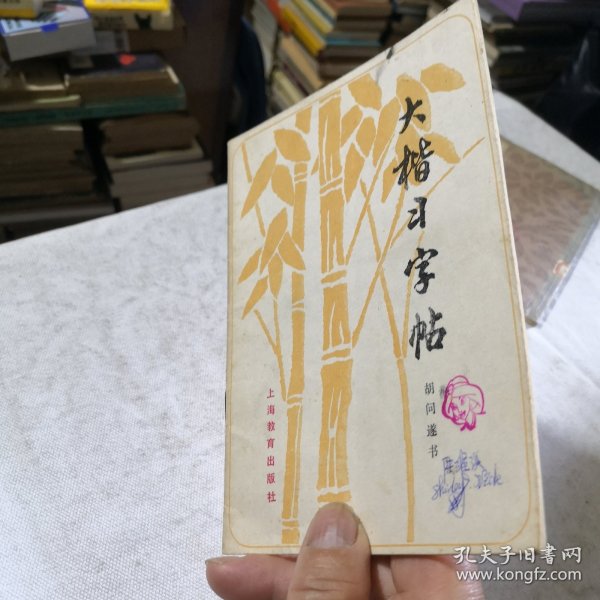 大楷习字帖
胡问遂书
上海教育出版社
孔夫子旧书网
www.kongfz.com